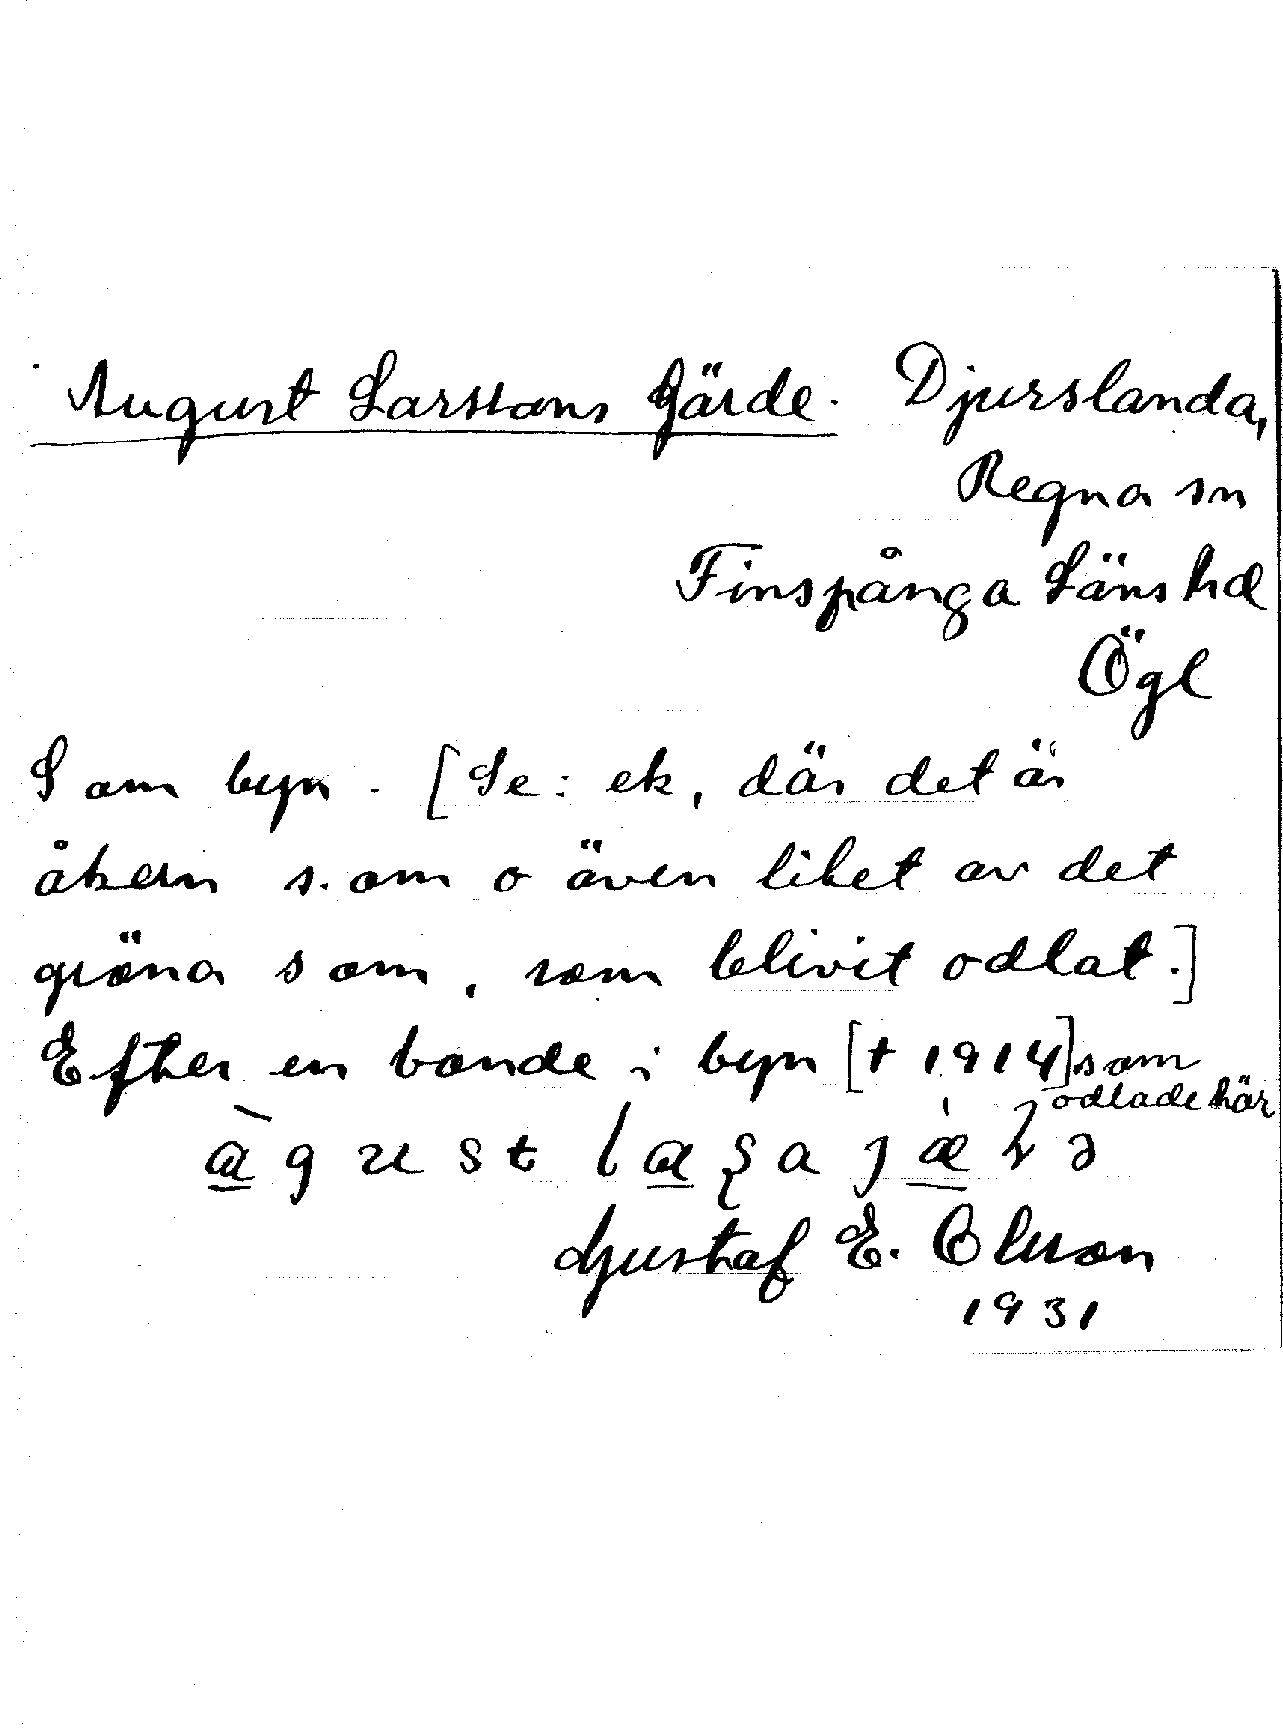 August Larssons Gärde. Djurslanda,
Regna sn
Finspånga Läns hd
Ögl
S om byn. [Se: ek, där det är
åkern s. om o även litet av det
gröna s om, som blivit odlat.]
Efter en bonde i byn [† 1914] som
odlade här
Gustaf E. Olsson
1931